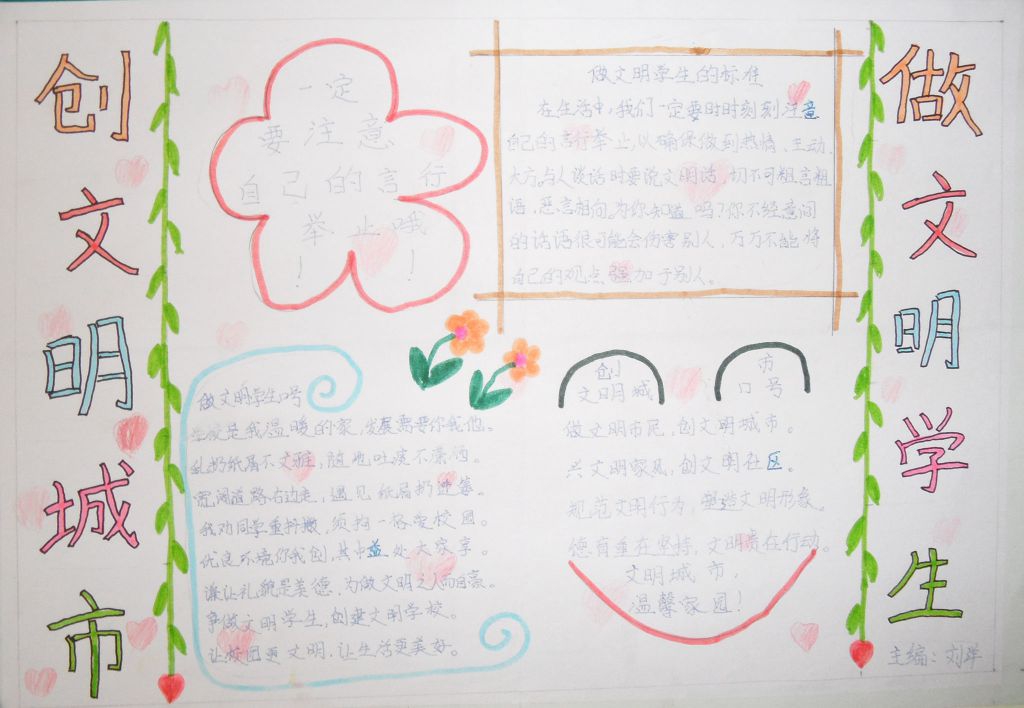 创文明城市
一定
要注意
自己的言行
举止哦
！！
做文明学生的标准
在生活中，我们一定要时时刻刻注意
自己的言行举止，以确保做到热情、主动、
大方。与人谈话时要说文明话，切不可粗言粗
语，恶言相向。为你知道吗？你不经意间
的话语很可能会伤害别人，万万不能将
自己的观点强加于别人。
做文明学生
做文明学生口号
学校是我温暖的家，发展需要你我他。
乱扔纸屑不文雅，随地吐痰不潇洒。
宽阔道路右边走，遇见纸屑扔进篓。
我劝同学重拧撒，须拘一格爱校园。
优良环境你我创，其中益处大家享。
谦让礼貌是美德，为做文明之人而自豪。
争做文明学生，创建文明学校。
让校园更文明，让生活更美好。
创 市
文明城 口号
做文明市民，创文明城市。
兴文明家风，创文明社区。
规范文明行为，塑造文明形象。
德育重在坚持，文明贵在行动。
文明城市，
温馨家园！
主编：刘洋